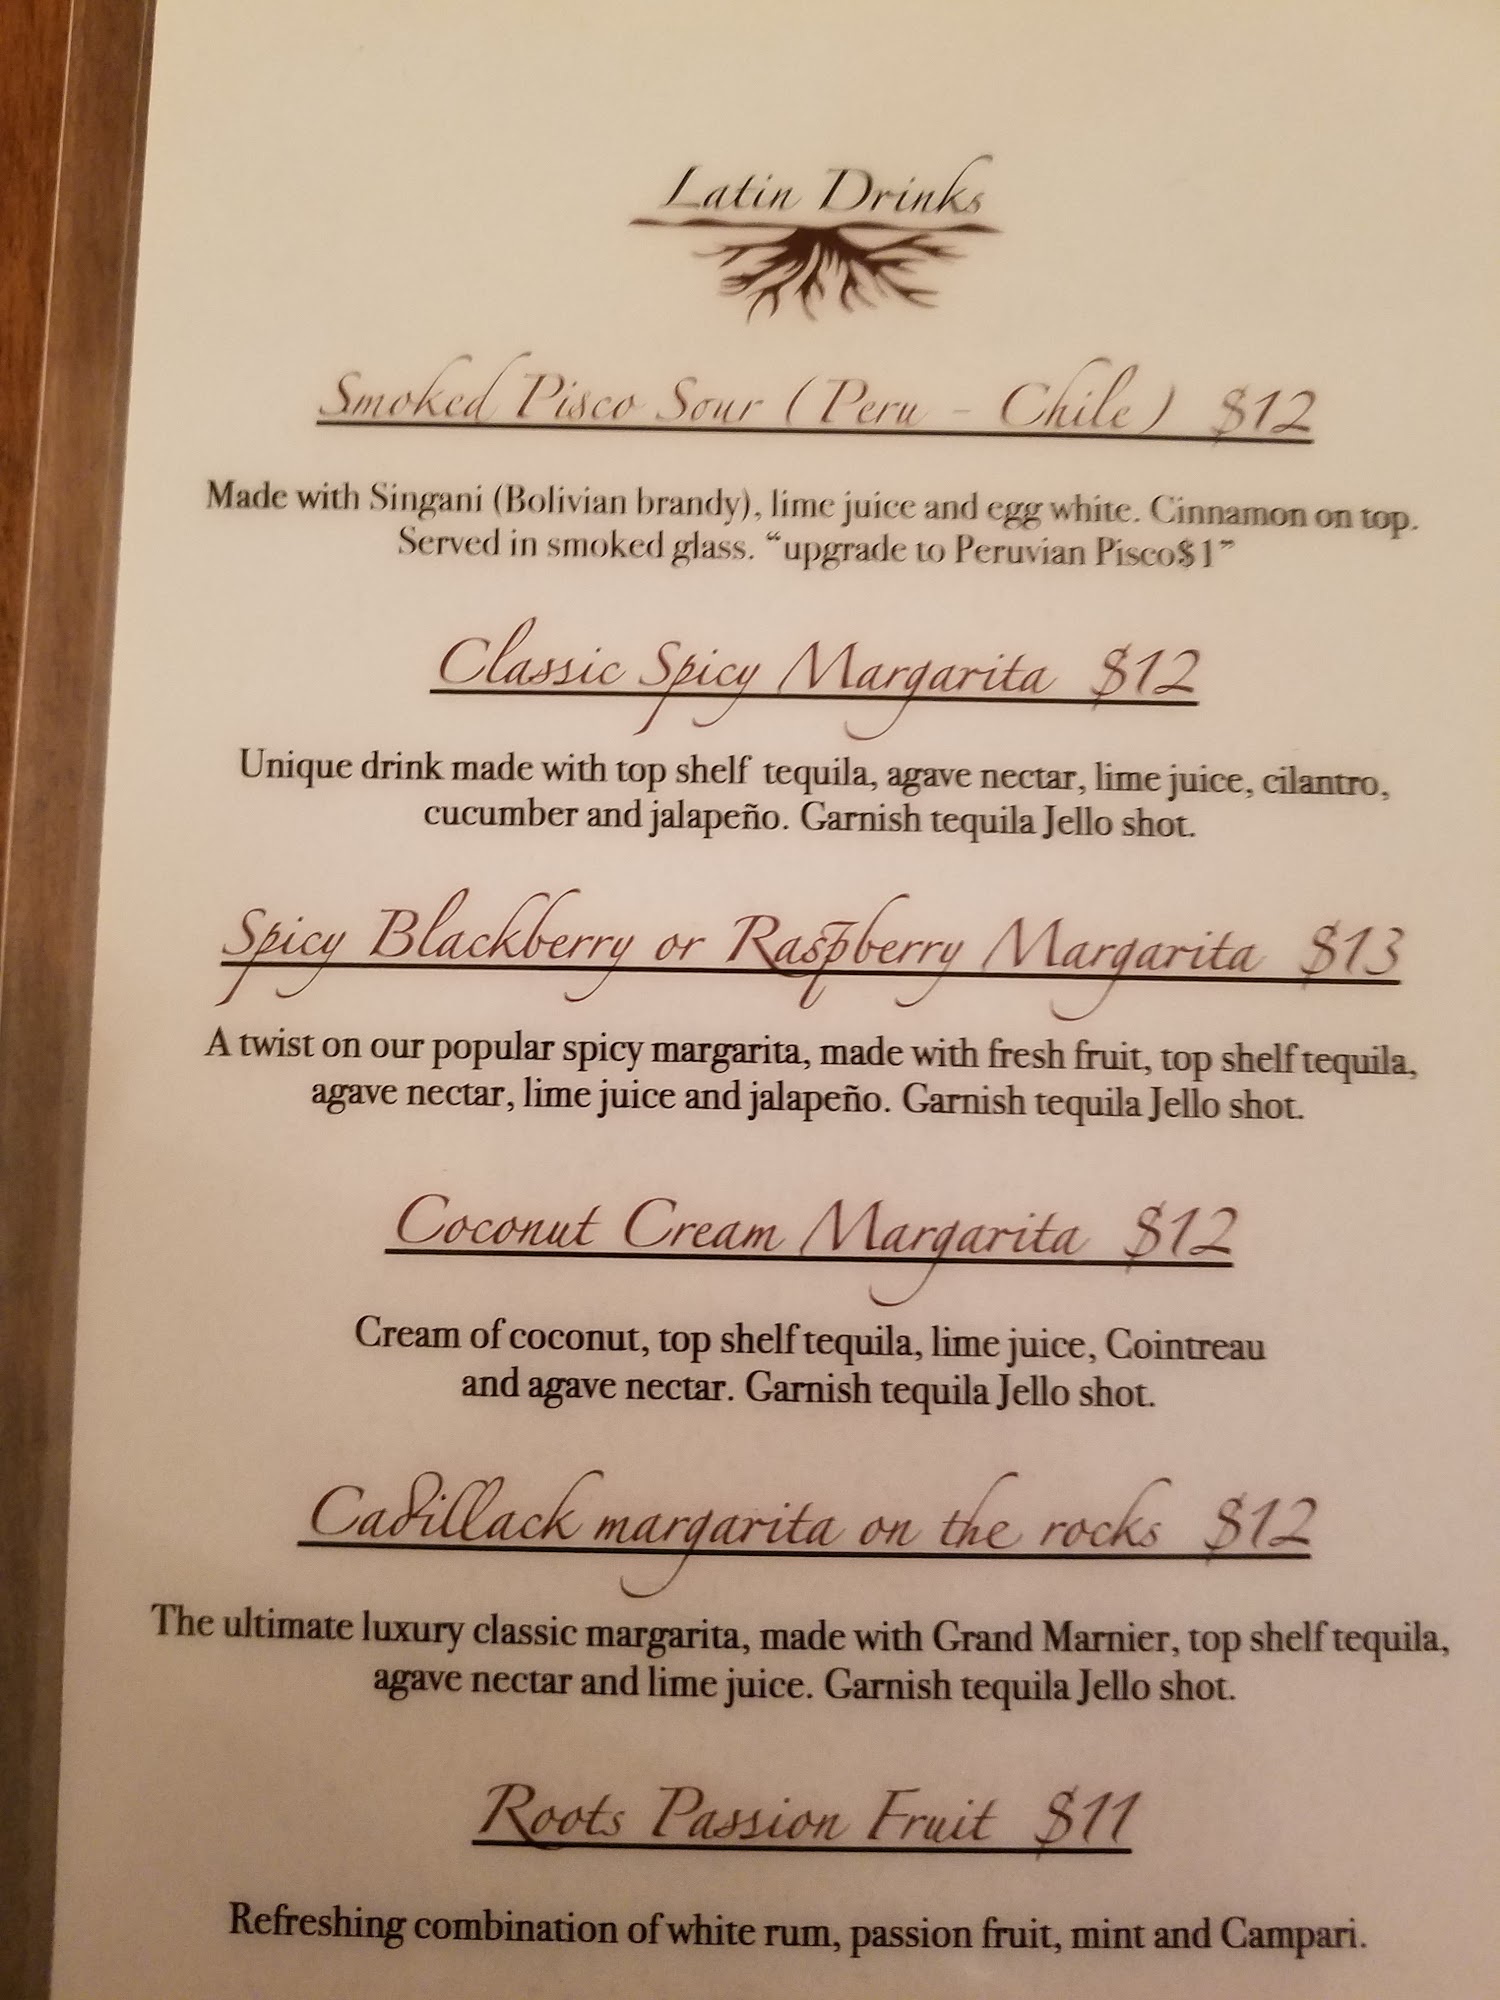 Latin Drinks
Smoked Pisco Sour (Peru - Chile) $12
Made with Singani (Bolivian brandy), lime juice and egg white. Cinnamon on top.
Served in smoked glass. “upgrade to Peruvian Pisco$1”
Classic Spicy Margarita $12
Unique drink made with top shelf tequila, agave nectar, lime juice, cilantro,
cucumber and jalapeño. Garnish tequila Jello shot.
Spicy Blackberry or Raspberry Margarita $13
A twist on our popular spicy margarita, made with fresh fruit, top shelf tequila,
agave nectar, lime juice and jalapeño. Garnish tequila Jello shot.
Coconut Cream Margarita $12
Cream of coconut, top shelf tequila, lime juice, Cointreau
and agave nectar. Garnish tequila Jello shot.
Cadillack margarita on the rocks $12
The ultimate luxury classic margarita, made with Grand Marnier, top shelf tequila,
agave nectar and lime juice. Garnish tequila Jello shot.
Roots Passion Fruit $11
Refreshing combination of white rum, passion fruit, mint and Campari.